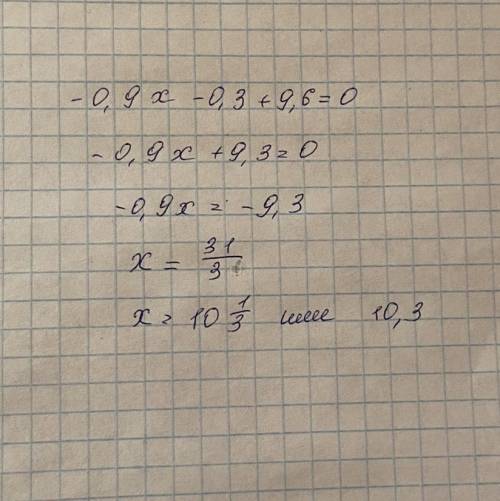 -0,9x -0,3+9,6=0
-0,9x +9,3=0
-0,9x = -9,3
x = 31/3
x = 10 1/3 или 10,3